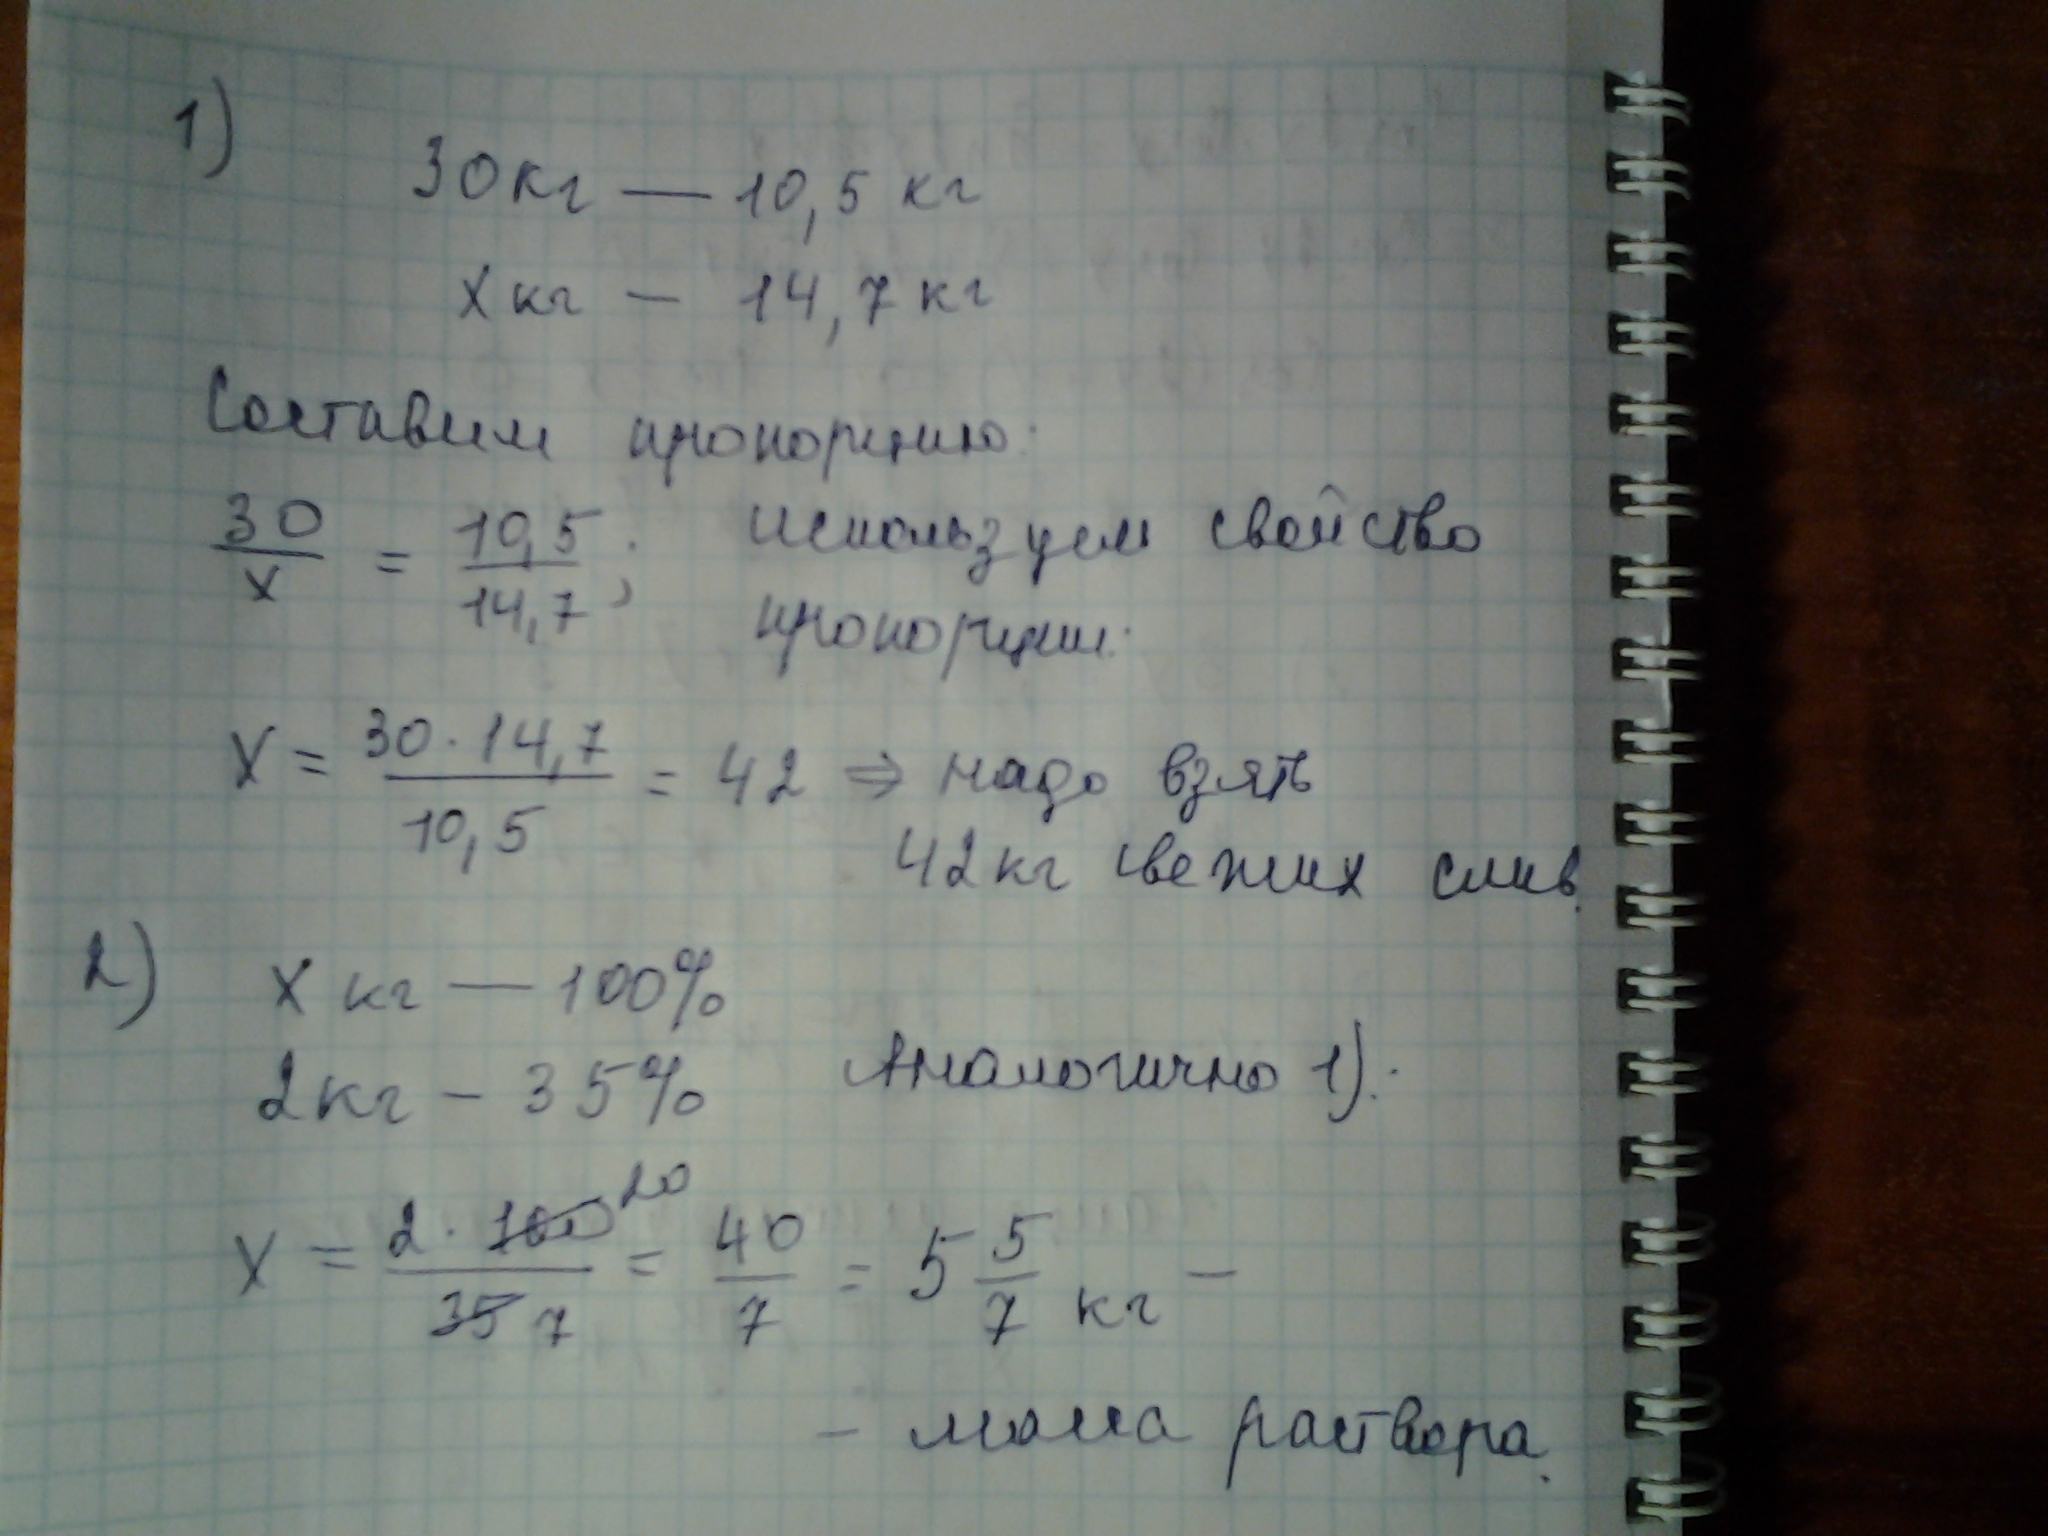 1)
30кг — 10,5 кг
х кг — 14,7 кг
Составим пропорцию:
30/х = 10,5/14,7; используем свойство
пропорции:
х = 30·14,7/10,5 = 42 ⇒ надо взять
42кг свежих слив.
2) х кг — 100%
2кг – 35% Аналогично 1):
х = 2·100 20/35 7 = 40/7 = 5 5/7 кг –
– масса раствора.